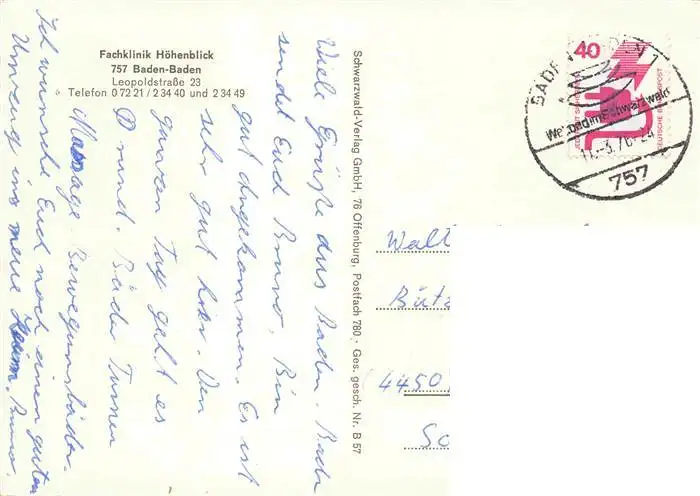 Fachklinik Höhenblick
757 Baden-Baden
Leopoldstraße 23
Telefon 0 72 21 / 2 34 40 und 2 34 49
Viele Grüße aus Baden. Bade
sendet Euch Bruno, Bin
gut angekommen. Es ist
sehr gut hier. Den
ganzen Tag geht es
rund. Bäder Turnen
Massage Bewegunsbäder.
Ich wünsche Euch noch einen guten
Umzug ins neue Heim. Bruno.
Schwarzwald-Verlag GmbH, 76 Offenburg, Postfach 780 · Ges. gesch. Nr. B 57
40
DEUTSCHE BUNDESPOST
BADEN-BADEN 1
Weltbad im Schwarzwald
757
Walt
Bütz
(4450)